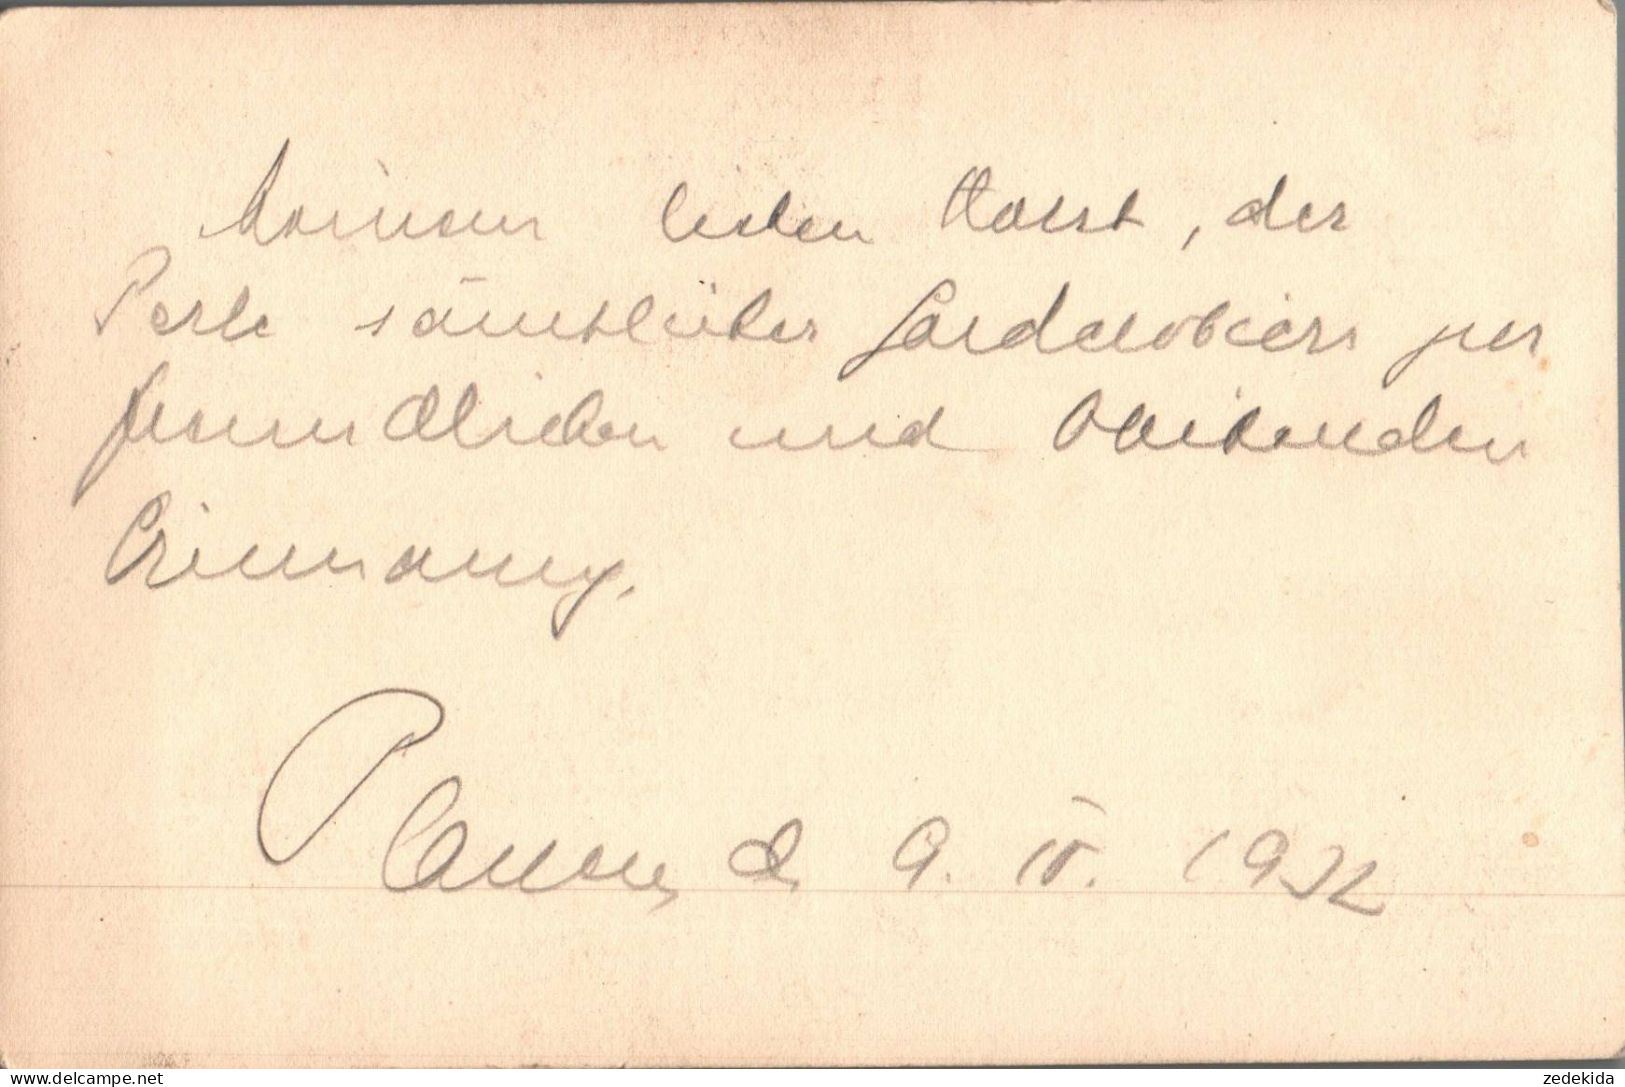 Meinem lieben Horst, der
Perle sämtlicher Garderobiers zur
freundlichen und bleibenden
Erinnerung.
Plauen, d. 9. IV. 1932
www.delcampe.net
zedekida